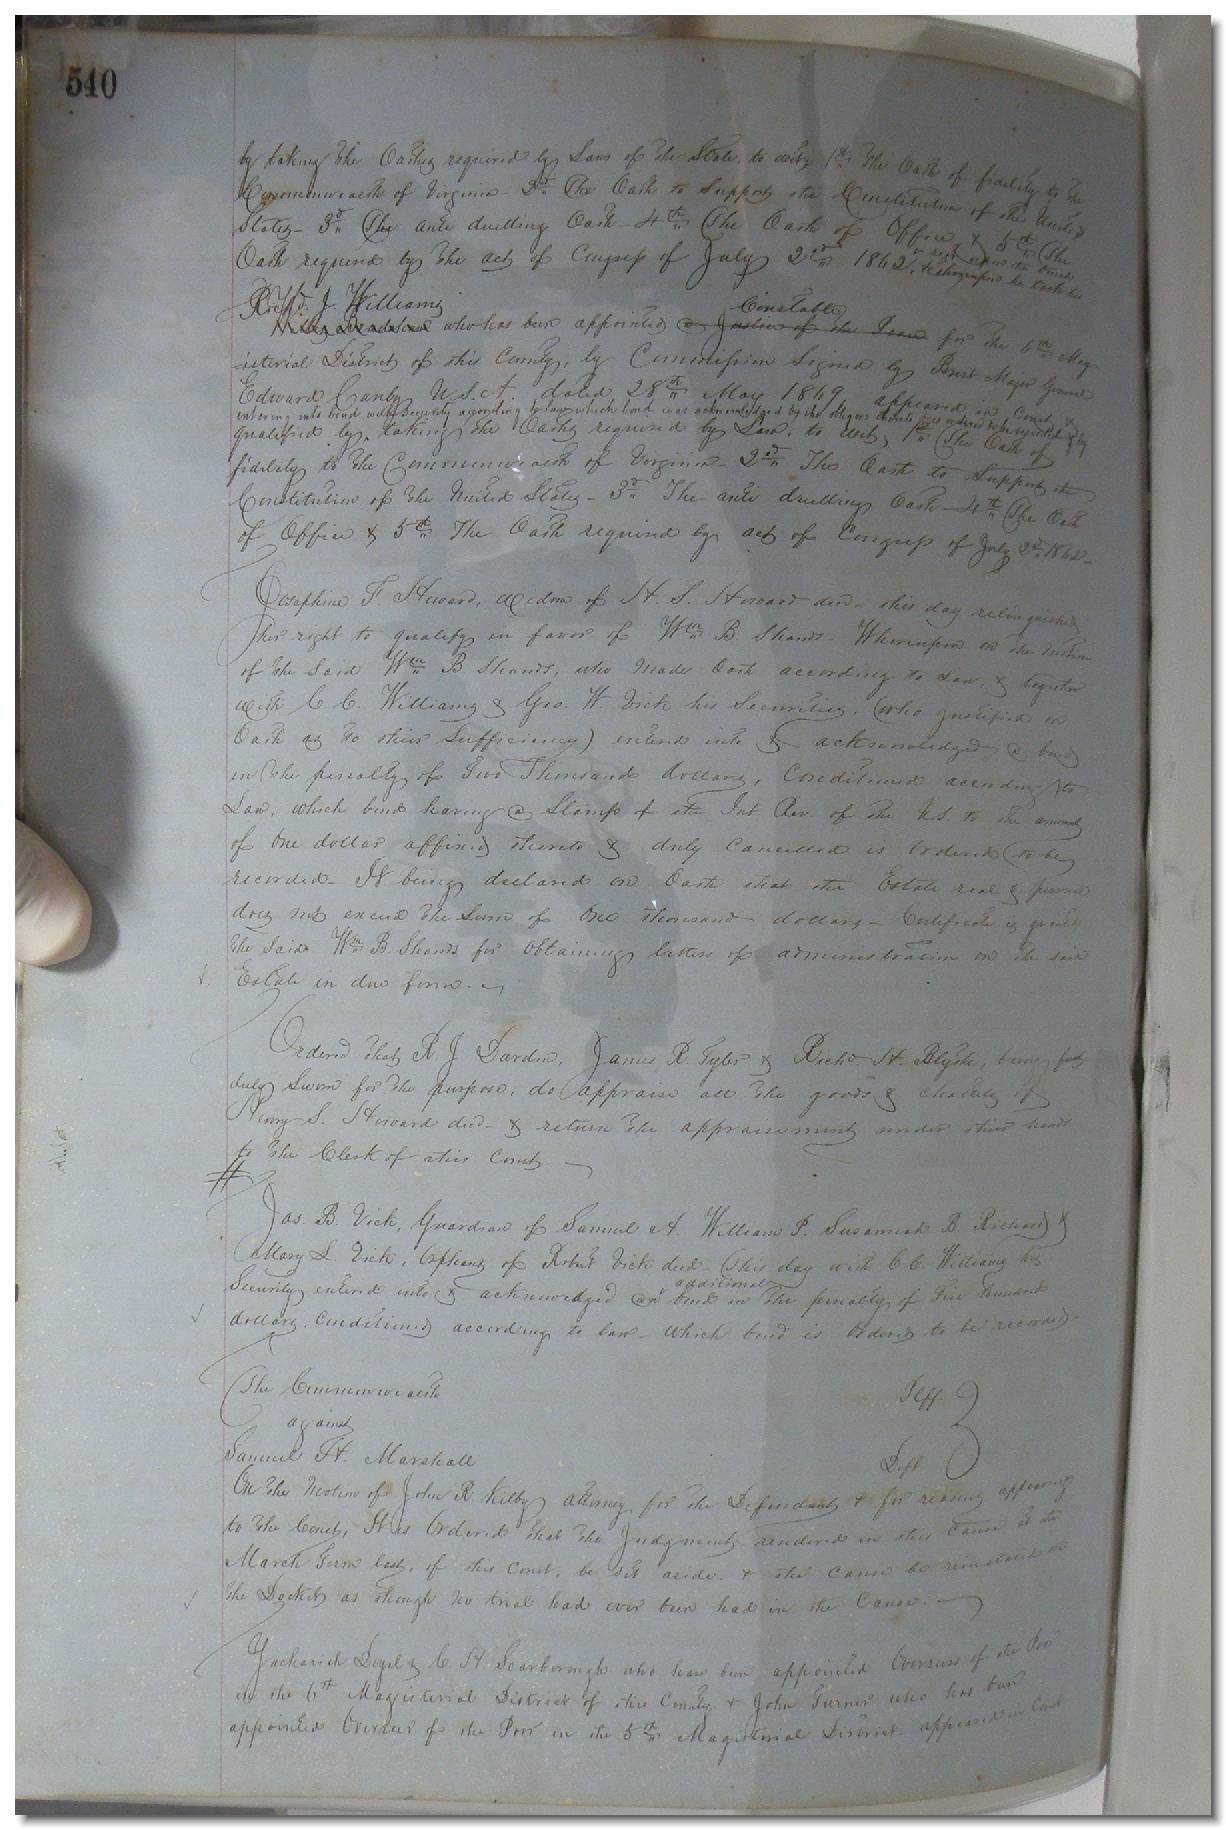 540
by taking the Oaths required by Laws of the State, to wit, 1st The Oath of fidelity to the
Commonwealth of Virginia - 2d The Oath to Support the Constitution of the United
States - 3d The anti duelling Oath - 4th The Oath of Office & 5th The
Oath required by the act of Congress of July 2nd 1862,
Richd. J. Williams Constable
who has been appointed a Justice of the Peace for the 6th Mag-
isterial District of this County, by Commission Signed by Brevt Major General
Edward Canby U.S.A. dated 28th May 1869 appeared in Court, &
entering into bond with Security according to law which bond was acknowledged by the obligors and ordered to be recorded & by
qualified by taking the Oaths required by Law, to wit, 1st The Oath of
fidelity to the Commonwealth of Virginia - 2nd The Oath to Support the
Constitution of the United States - 3d The anti duelling Oath - 4th The Oath
of Office & 5th The Oath required by act of Congress of July 2d 1862 -
Josephine F. Howard, widow of H. S. Howard decd - this day relinquished
her right to qualify in favor of Wm B. Shands - Whereupon on the motion
of the said Wm B. Shands, who made Oath according to Law, & together
with C. C. Williams & Geo. W. Vick his Securities, (who justified on
Oath as to their Sufficiency) entered into & acknowledged a bond
in the penalty of Two Thousand dollars, Conditioned according to
Law, which bond having a Stamp of the Int Rev. of the U.S. to the amount
of One dollar affixed thereto & duly Cancelled is Ordered to be
recorded - It being declared on Oath that the Estate real & personal
does not exceed the Sum of One thousand dollars - Certificate is granted
the said Wm B. Shands for Obtaining letters of administration on the said
Estate in due form. -
Ordered that R J Darden, James R. Tyler & Richd. H. Blythe, being first
duly Sworn for the purpose, do appraise all the goods & chattels of
Henry S. Howard decd - & return the appraisement under their hands
to the Clerk of this Court -
#
Jas. B. Vick, Guardian of Samuel A. William P. Susannah B. Richard &
Mary L. Vick, Orphans of Robert Vick decd - this day with C. C. Williams his
additional
Security entered into & acknowledged an bond in the penalty of Five Thousand
dollars, Conditioned according to law - which bond is Ordered to be recorded -
The Commonwealth Plff
against
Samuel H. Marshall Deft
On the Motion of John R. Kilby attorney for the Defendant & for reasons appearing
to the Court, It is Ordered that the Judgment rendered in this Cause at the
March Term last, of this Court, be set aside, & the Cause be reinstated on
the Docket as though no trial had ever been had in the Cause. -
Zachariah & C. H. Scarborough who have been appointed Overseers of the Poor
in the 6th Magisterial District of this County & John Turner who has been
appointed Overseer of the Poor in the 5th Magisterial District - appeared in Court